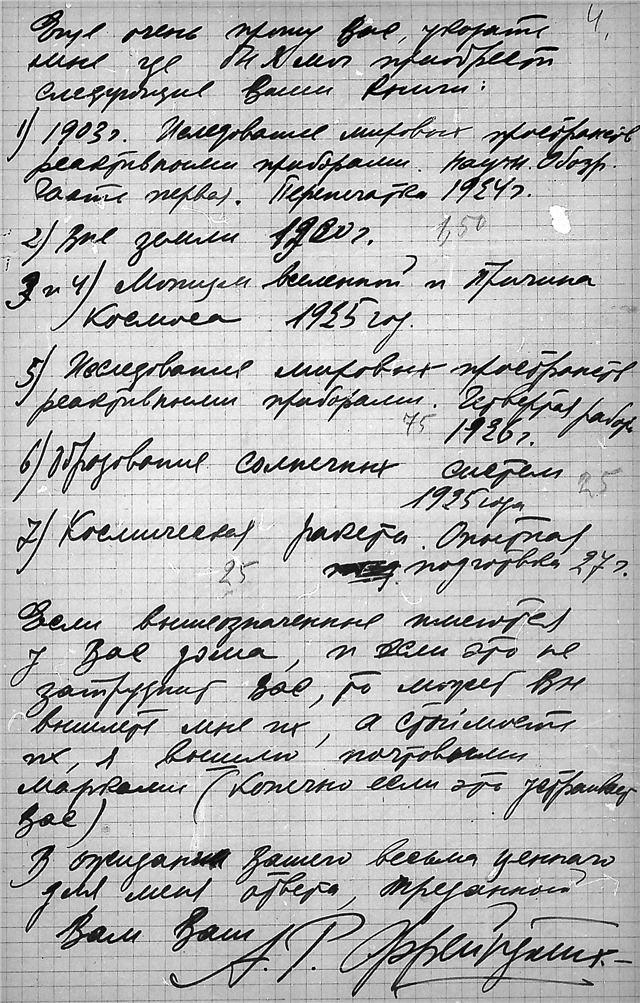 4.
Еще очень прошу Вас, указать
мне где бы я мог приобрести
следующие Ваши книги:
1) 1903 г. Иследование мировых пространств
реактивными приборами. Научн. Обозр.
Часть первая. Перепечатка 1924 г.
2) Вне земли 1920 г. 1,50
3 и 4) Монизм вселенной и Причина
Космоса 1925 год.
5) Исследование мировых пространств
реактивными приборами. Четвертая работа
75 1926 г.
6) Образование солнечных систем
1925 года 25
7) Космическая ракета. Опытная
25 подготовка 27 г.
Если вышеозначенные имеются
у Вас дома, и если это не
затруднит Вас, то может Вы
вышлете мне их, а стоимость
их, я вышлю почтовыми
марками (конечно если это устраивает
Вас)
В ожидании Вашего весьма ценнаго
для меня ответа, преданной
Вам Ваш
А. Р.